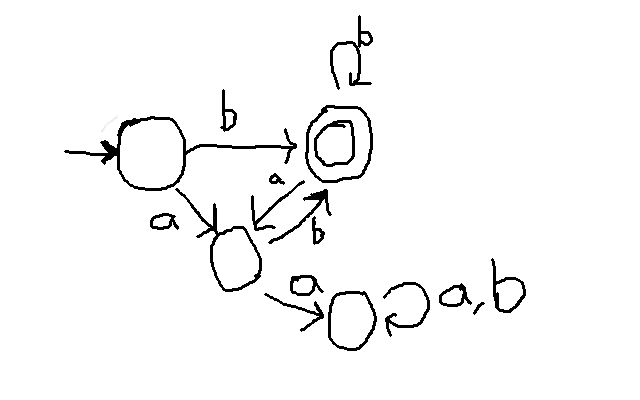 b
b
a
a
b
a
a, b